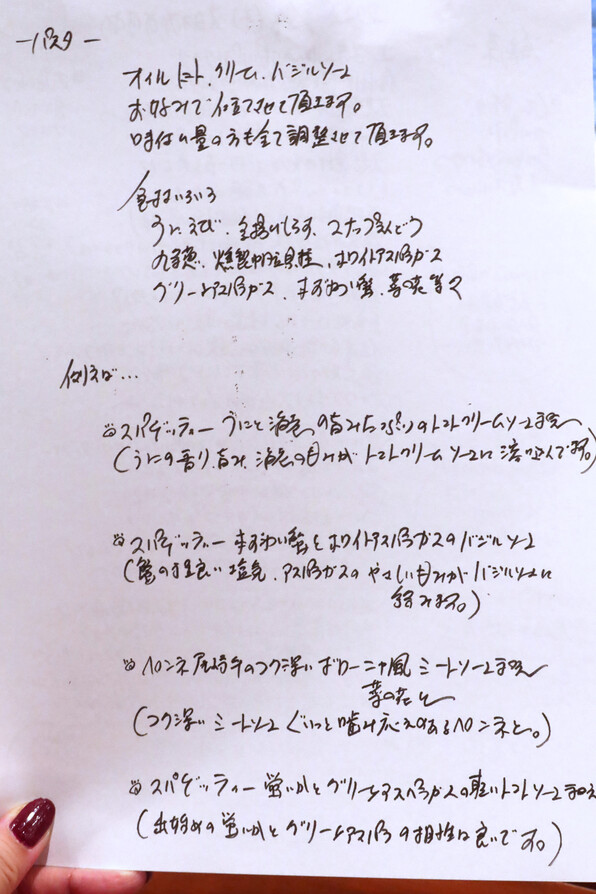 ーパスター
オイル トマト、クリーム、バジルソース
お好みで仕立てさせて頂きます。
味付や量の方も全て調整させて頂きます。
食材いろいろ
うに、えび、釜揚げしらす、スナップえんどう
九条葱、燻製帆立貝柱、ホワイトアスパラガス
グリーンアスパラガス、本ずわい蟹、菜の花 等々
例えば…
スパゲッティー うにと 海老の旨みたっぷりのトマトクリームソース まぜ
(うにの香り、旨み、海老の甘みが トマトクリームソースに溶け込んでます。)
スパゲッティー 本ずわい蟹とホワイトアスパラガスのバジルソース
(蟹の程良い塩気、アスパラガスの やさしい甘みが バジルソースに
絡みます。)
ペンネ 尾崎牛のコク深い ボローニャ風 ミートソース まぜ
菜の花と
(コク深い ミートソース ぐいっと噛み応えのあるペンネと。)
スパゲッティー 蛍いかと グリーンアスパラガスの軽いトマトソース まぜ
(出始めの 蛍いかと グリーンアスパラの相性は良いです。)